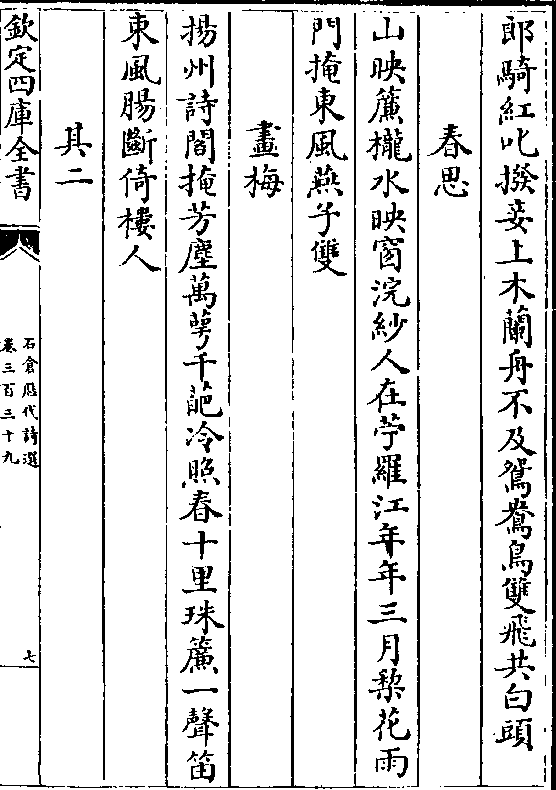 郎騎紅叱撥妾上木蘭舟不及鴛鴦鳥雙飛共白頭
春思
山映簾櫳水映窗浣紗人在苧羅江年年三月梨花雨
門掩東風燕子雙
畫梅
揚州詩閣掩芳塵萬萼千葩冷照春十里珠簾一聲笛
東風腸斷倚樓人
其二
欽定四庫全書
石倉歷代詩選
卷三百三十九
七